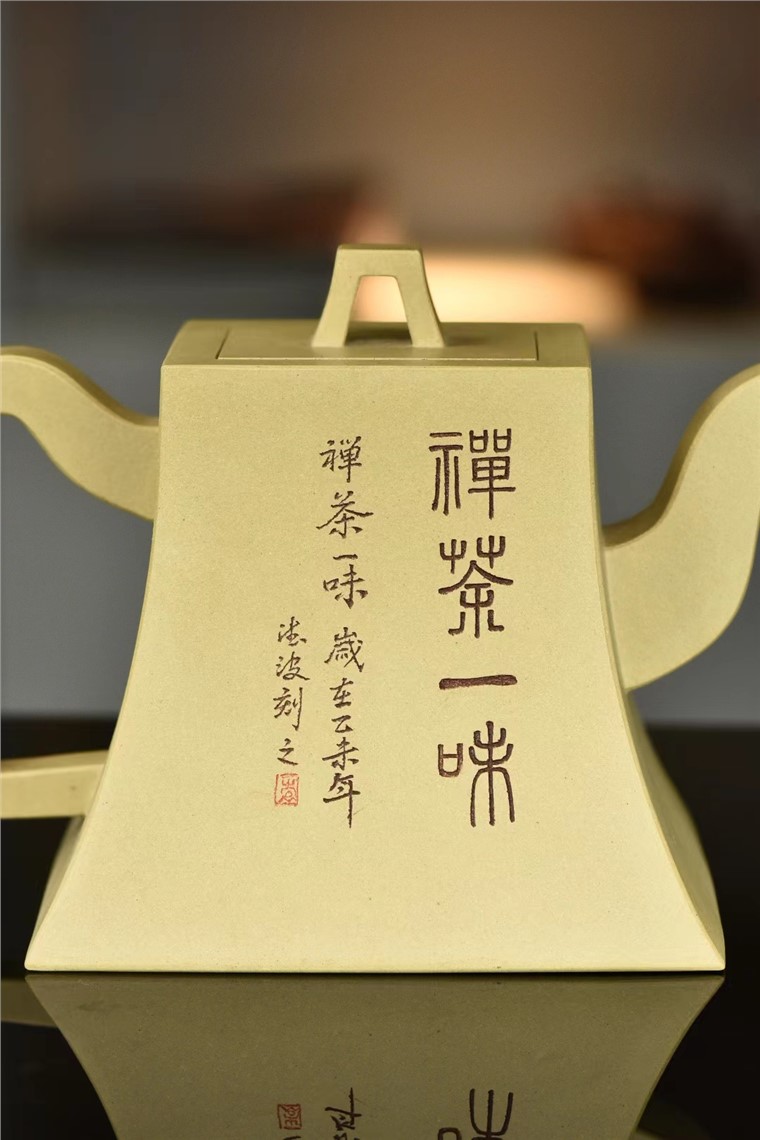 禪茶一味
禅茶一味 歲在乙未年
德波刻之